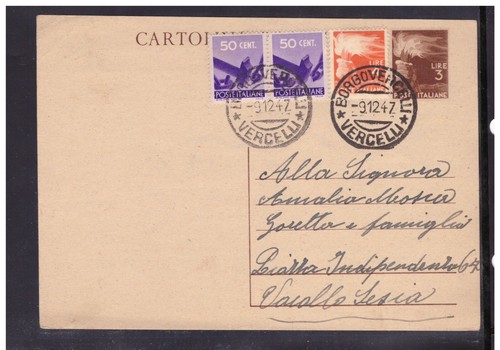 CARTOLIN
50 CENT. 50 CENT. LIRE 3
POSTE ITALIANE POSTE ITALIANE POSTE ITALIANE
BORGOVERCELLI BORGOVERCELLI
-9.12.47. -9.12.47
VERCELLI VERCELLI
Alla Signora
Amalia Mosca
Loretta e famiglia
Piazza Indipendenza 64
Varallo Sesia